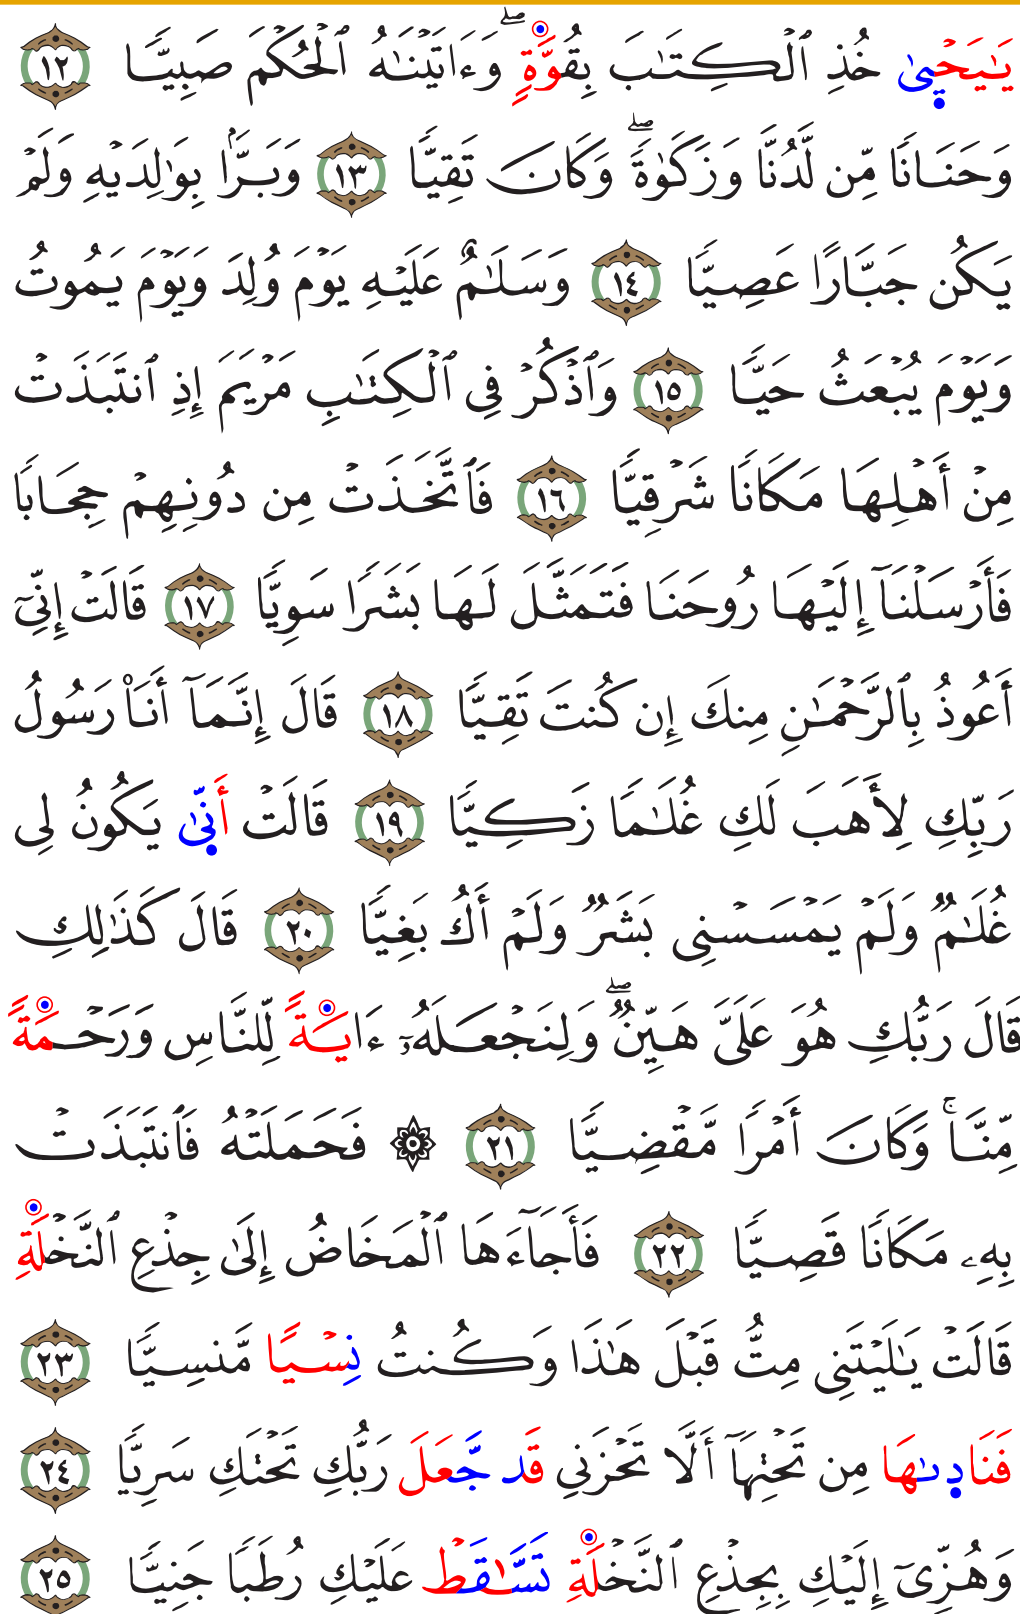 يَٰيَحۡيىٰ خُذِ ٱلۡكِتَٰبَ بِقُوَّةٖۖ وَءَاتَيۡنَٰهُ ٱلۡحُكۡمَ صَبِيّٗا ١٢
وَحَنَانٗا مِّن لَّدُنَّا وَزَكَوٰةٗۖ وَكَانَ تَقِيّٗا ١٣ وَبَرَّۢا بِوَٰلِدَيۡهِ وَلَمۡ
يَكُن جَبَّارًا عَصِيّٗا ١٤ وَسَلَٰمٌ عَلَيۡهِ يَوۡمَ وُلِدَ وَيَوۡمَ يَمُوتُ
وَيَوۡمَ يُبۡعَثُ حَيّٗا ١٥ وَٱذۡكُرۡ فِي ٱلۡكِتَٰبِ مَرۡيَمَ إِذِ ٱنتَبَذَتۡ
مِنۡ أَهۡلِهَا مَكَانٗا شَرۡقِيّٗا ١٦ فَٱتَّخَذَتۡ مِن دُونِهِمۡ حِجَابٗا
فَأَرۡسَلۡنَآ إِلَيۡهَا رُوحَنَا فَتَمَثَّلَ لَهَا بَشَرٗا سَوِيّٗا ١٧ قَالَتۡ إِنِّيٓ
أَعُوذُ بِٱلرَّحۡمَٰنِ مِنكَ إِن كُنتَ تَقِيّٗا ١٨ قَالَ إِنَّمَآ أَنَا۠ رَسُولُ
رَبِّكِ لِأَهَبَ لَكِ غُلَٰمٗا زَكِيّٗا ١٩ قَالَتۡ أَنّىٰ يَكُونُ لِي
غُلَٰمٞ وَلَمۡ يَمۡسَسۡنِي بَشَرٞ وَلَمۡ أَكُ بَغِيّٗا ٢٠ قَالَ كَذَٰلِكِ
قَالَ رَبُّكِ هُوَ عَلَيَّ هَيِّنٞۖ وَلِنَجۡعَلَهُۥٓ ءَايَةٗ لِّلنَّاسِ وَرَحۡمَةٗ
مِّنَّاۚ وَكَانَ أَمۡرٗا مَّقۡضِيّٗا ٢١ ۞ فَحَمَلَتۡهُ فَٱنتَبَذَتۡ
بِهِۦ مَكَانٗا قَصِيّٗا ٢٢ فَأَجَآءَهَا ٱلۡمَخَاضُ إِلَىٰ جِذۡعِ ٱلنَّخۡلَةِ
قَالَتۡ يَٰلَيۡتَنِي مِتُّ قَبۡلَ هَٰذَا وَكُنتُ نِسۡيٗا مَّنسِيّٗا ٢٣
فَنَادىٰهَا مِن تَحۡتِهَآ أَلَّا تَحۡزَنِي قَد جَّعَلَ رَبُّكِ تَحۡتَكِ سَرِيّٗا ٢٤
وَهُزِّيٓ إِلَيۡكِ بِجِذۡعِ ٱلنَّخۡلَةِ تَسَّٰقَطۡ عَلَيۡكِ رُطَبٗا جَنِيّٗا ٢٥